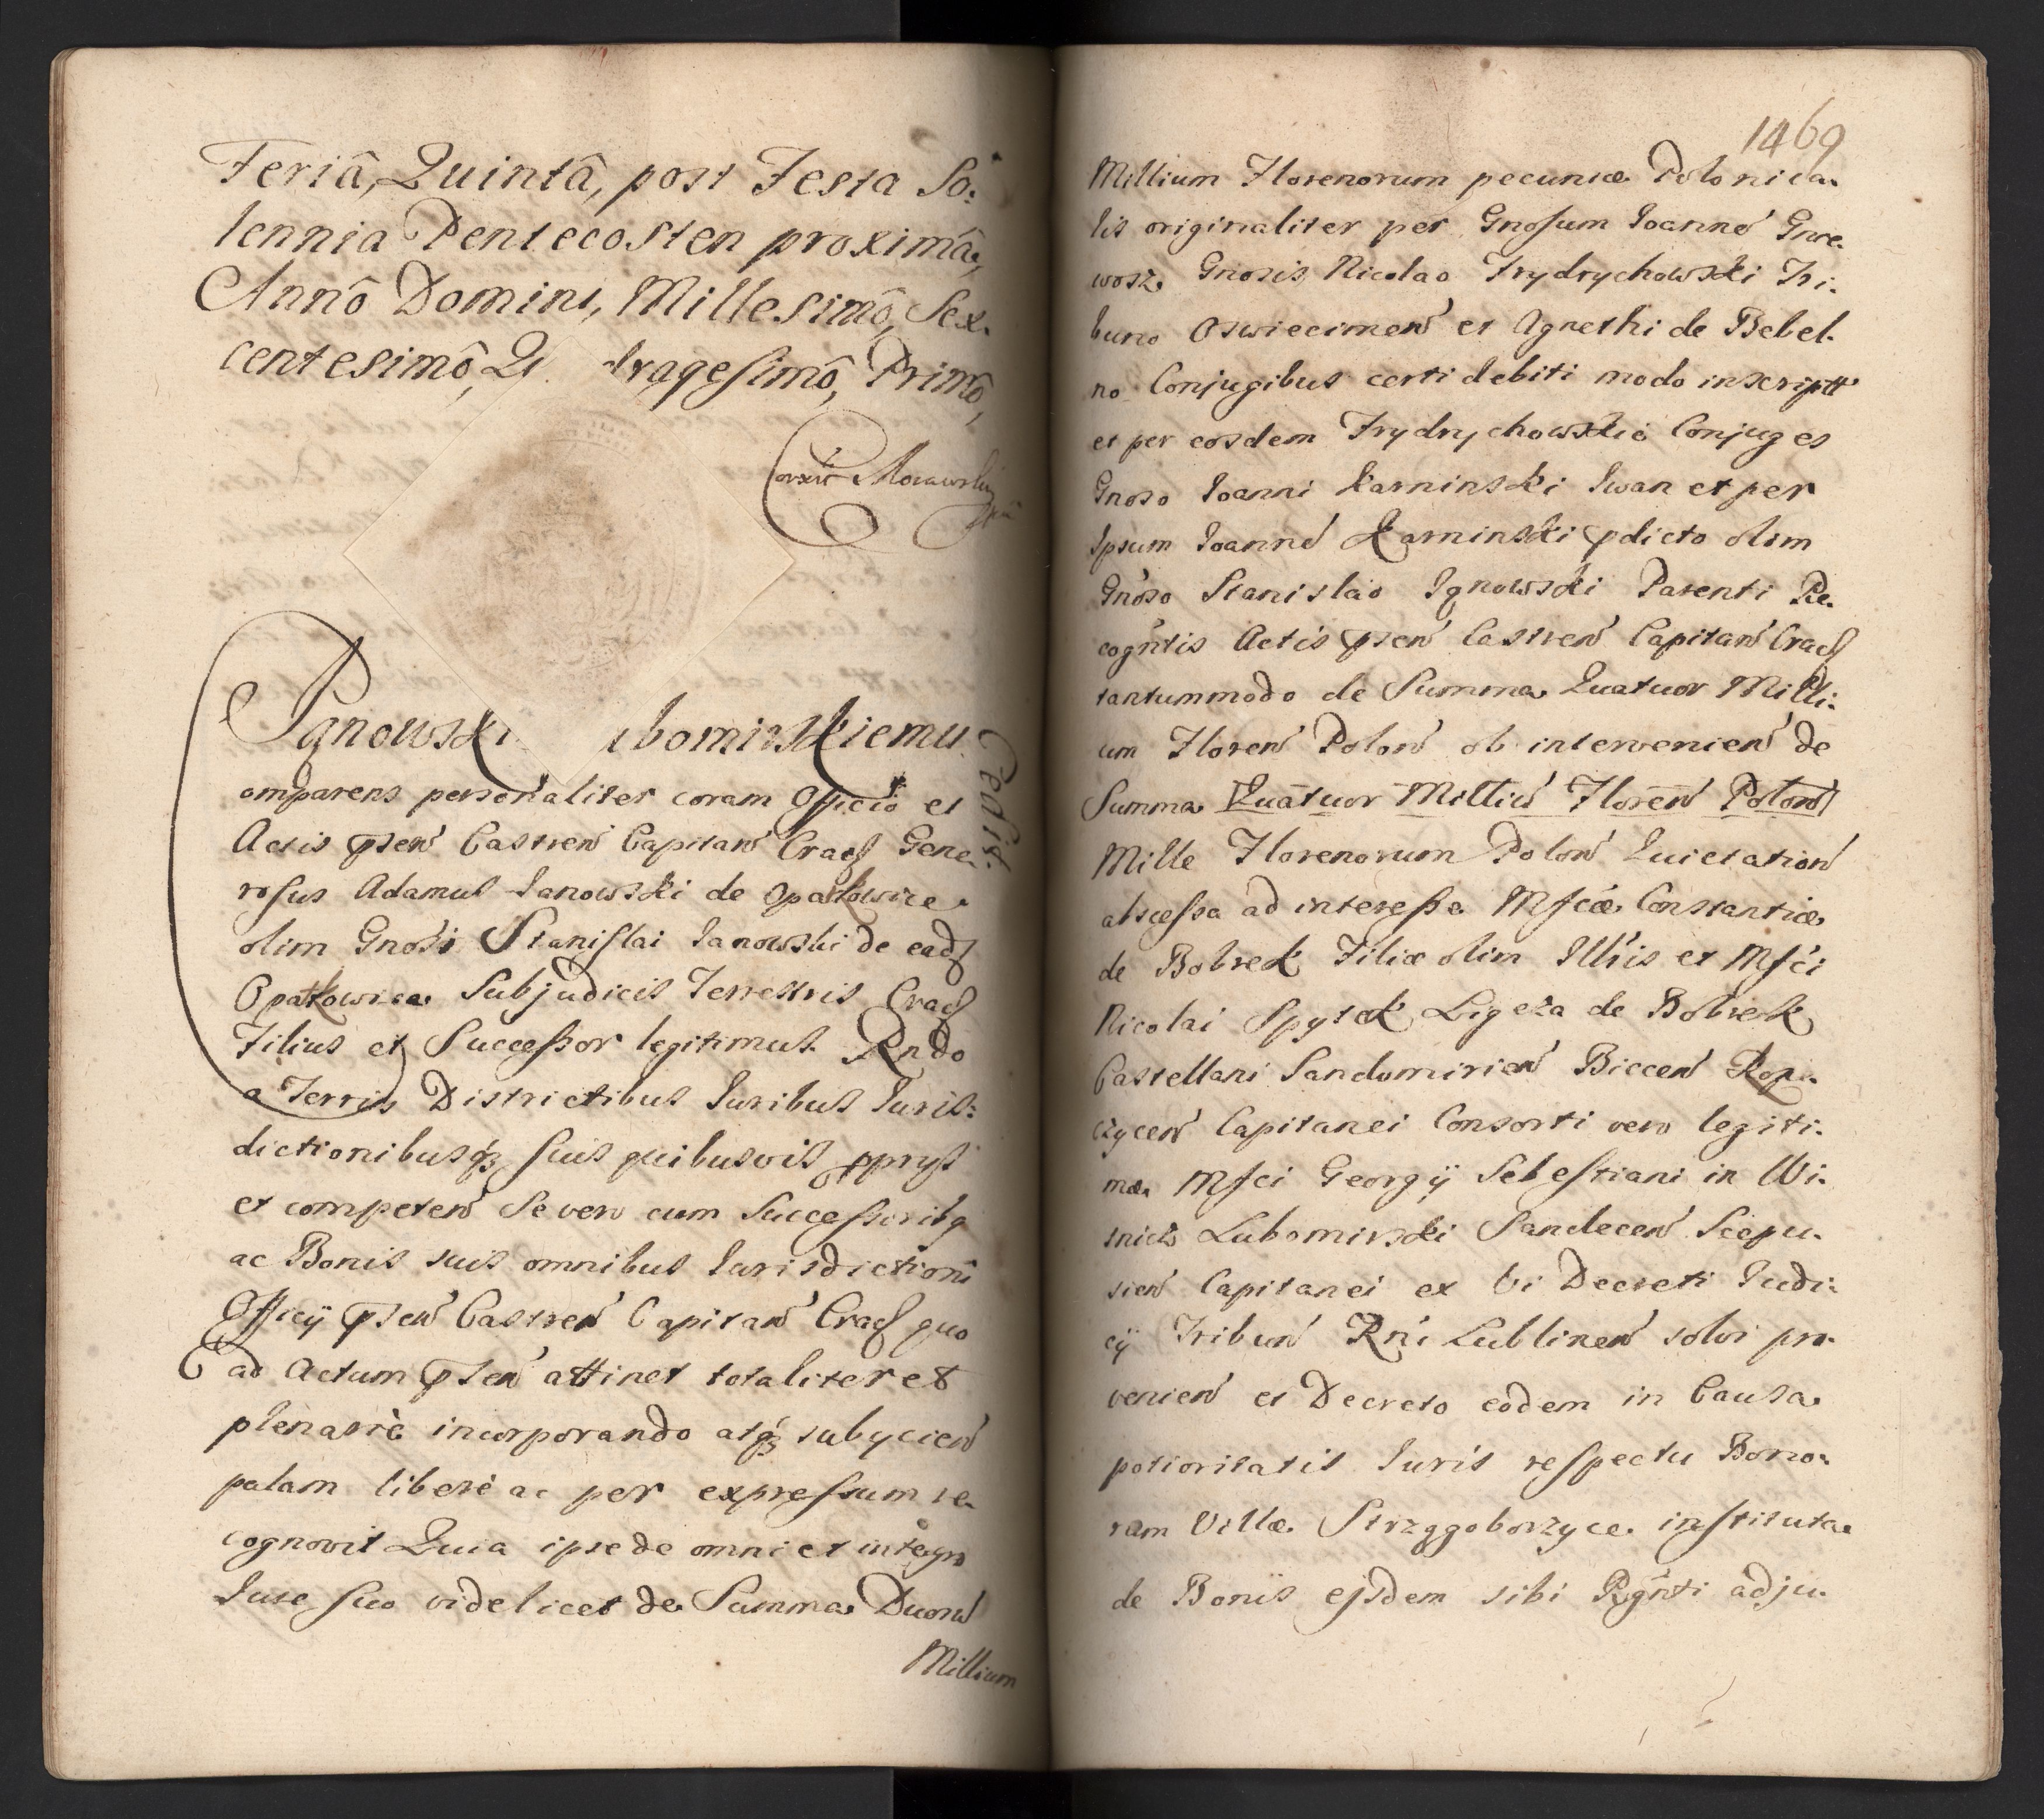 Feriâ, Quintâ, post Festa So:
lennia Pentecosten proximâ,
Annô Domini, Millesimô, Sex.
centesimô, Q dragesimô, Primô,
Morawski
Cessit.
Janowski ubomirskiemu
omparens personaliter coram Officio et
Actis pñsen Castren Capitan Crac Gene
rosus Adamus Janowski de Opatkowice
olim Gnosi Stanislai Janowski de ead
Opatkowice Subjudicis Terrestris Crac
Filius et Successor legitimus Rndo
a Terris Districtibus Iuribus Iuris:
dictionibusq suis quibusvis pprys
et competen Se vero cum Successoribq
ac Bonis suis omnibus Iurisdictioni
Officÿ pñsen Castren Capitan Crac quo
ad Actum pñsen attinet totaliter et
plenariè incorporando atq subycien
palam liberè ac per expressum re
cognovit Quia ipse de omni et integro
Iure suo videlicet de Summa Duoru
Millium
1469
Millium Florenorum pecuniæ Polonica
lis originaliter per Gnosum Joanne Gnie
wosz Gnosis Nicolao Frydrychowski Tri.
buno Oswiecimen et Agnethi de Bebel
no Conjugibus certi debiti modo inscriptt
et per eosdem Frydrychowskie Conjuges
Gnoso Joanni Karninski Iwan et per
Ipsum Joanne Karninski pdicto olim
Gnoso Stanislao Ignowski Parenti Re
cogntis Actis pñsen Castren Capitan Crac
tantummodo de Summa Quatuor Milli:
um Floren Polon ob intervenien de
Summa Quatuor Milliu Floren Polon
Mille Florenorum Polon Quietation
abscessa ad interesse Mfcæ Constantiæ
de Bobrek Filiæ olim Illris et Mfci
Nicolai Spytek Ligeza de Bobrek
Castellani Sandomirien Biecen Ropi
czycen Capitanei Consorti vero legiti.
mæ Mfci Georgÿ Sebestiani in Wi.
snicz Lubomirski Sandecen Scepu.
sien Capitanei ex Vi Decreti Iudi:
cÿ Tribun Rni Lublinen solvi pro
venien et Decreto eodem in Causa
potioritatis Iuris respectu Bono:
rum Villæ Strzggoborzyce instituta
de Bonis ejsdem sibi Rgnti adju.